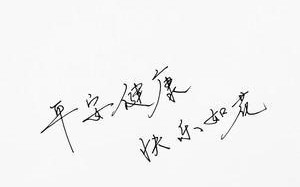 平安健康
快乐如意